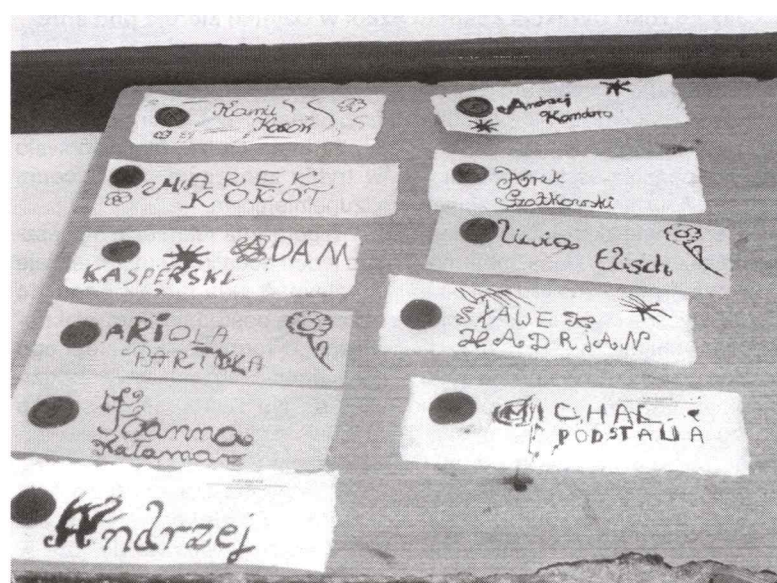 Kamil
MAREK
KOKOT
ADAM
KASPERSKI
ARIOLA
PARTYKA
Joanna
Katamaz
Andrzej
Andrzej
Komdro
Arek
Grotkowski
Liwia
Elisch
SŁAWEK
HADRIAN
MICHAŁ
PODSTAWA